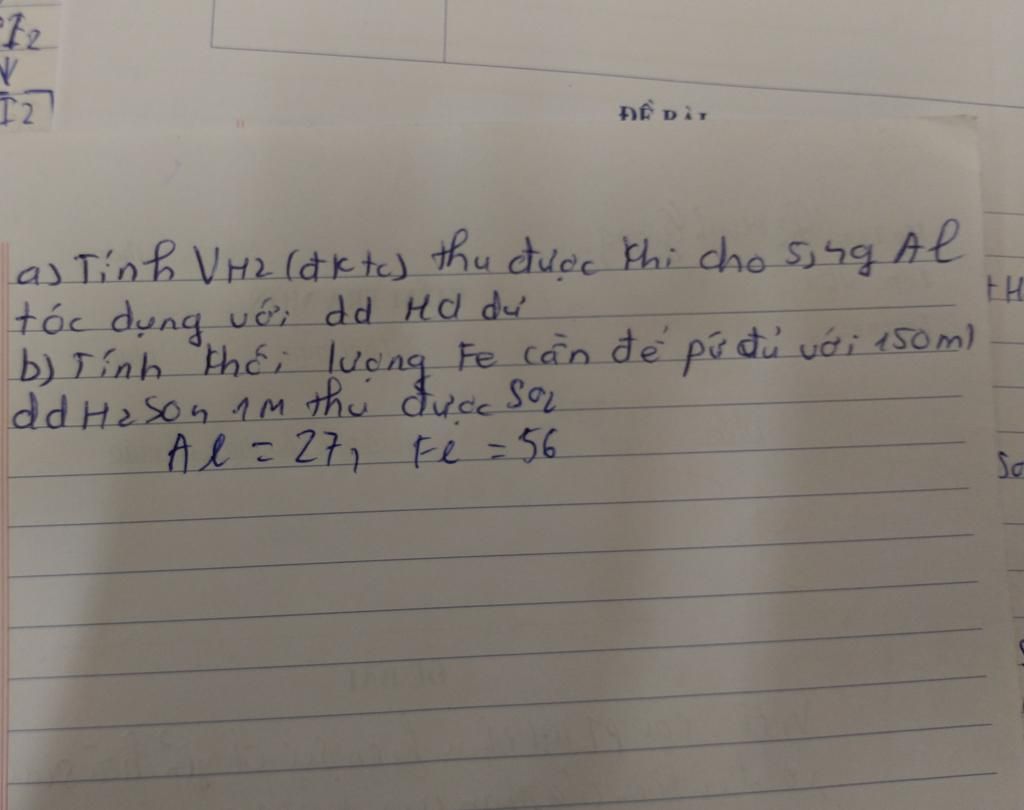 I2
I2
ĐỀ BÀI
a) Tính VH2 (đktc) thu được khi cho 5,4g Al
tác dụng với dd HCl dư
b) Tính khối lượng Fe cần để pứ đủ với 150ml
dd H2SO4 1M thu được SO2
Al = 27, Fe = 56
+H